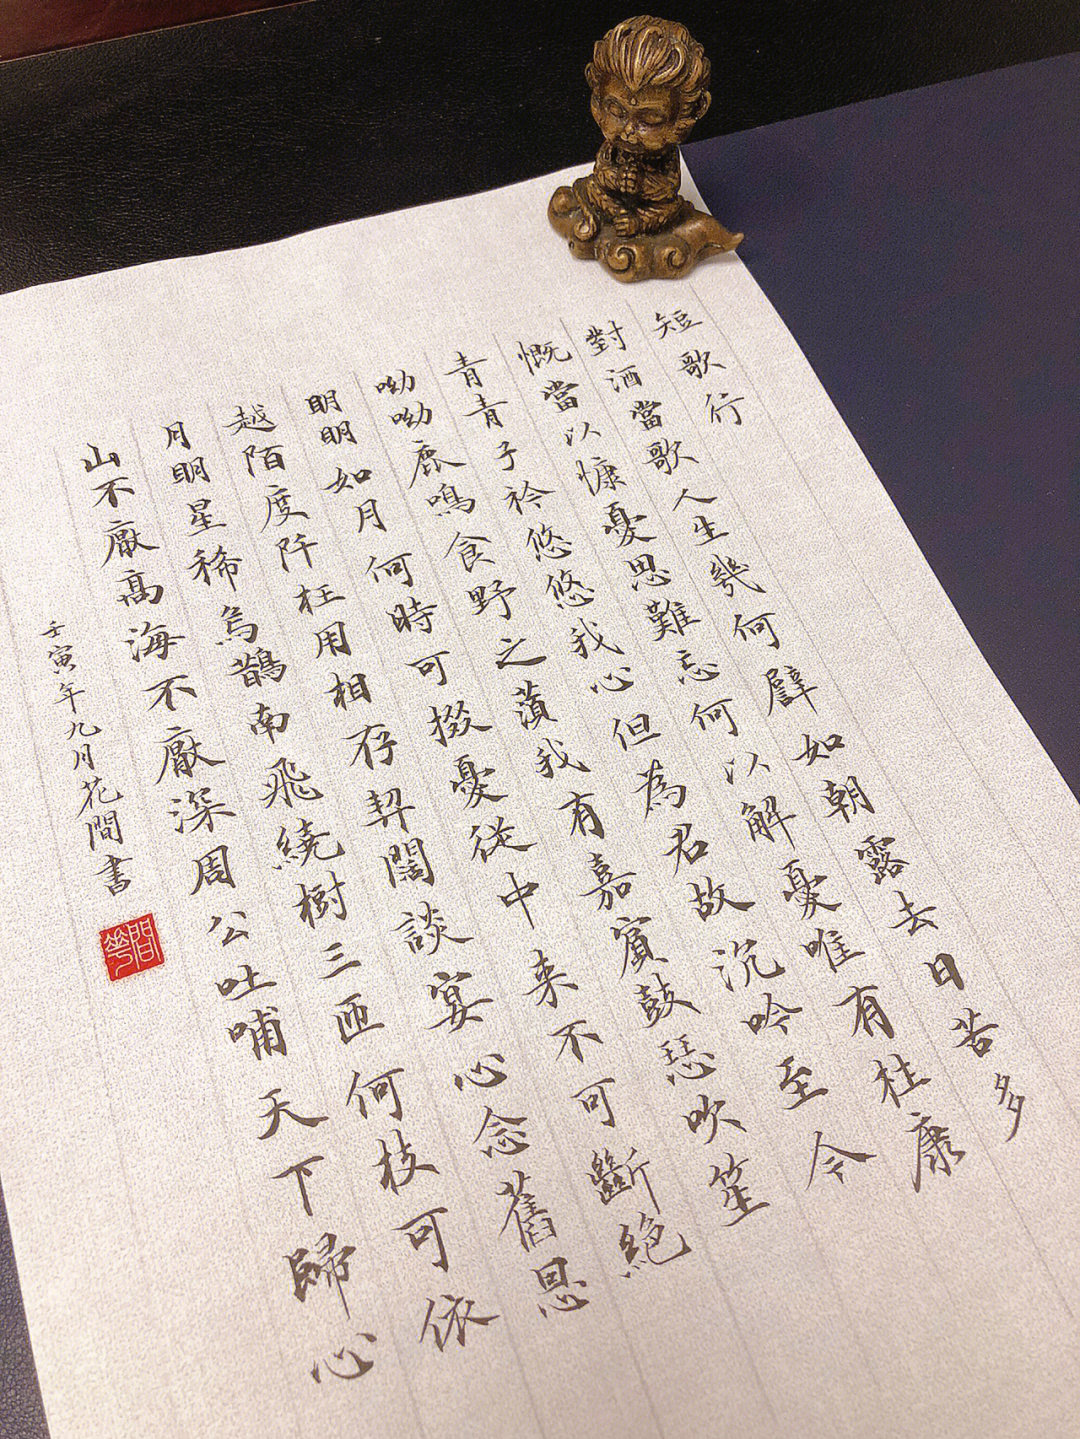 短歌行
對酒當歌人生幾何譬如朝露去日苦多
慨當以慷憂思難忘何以解憂唯有杜康
青青子衿悠悠我心但為君故沉吟至今
呦呦鹿鳴食野之蘋我有嘉賓鼓瑟吹笙
明明如月何時可掇憂從中來不可斷絕
越陌度阡枉用相存契闊談宴心念舊恩
月明星稀烏鵲南飛繞樹三匝何枝可依
山不厭高海不厭深周公吐哺天下歸心
壬寅年九月花間書
花間